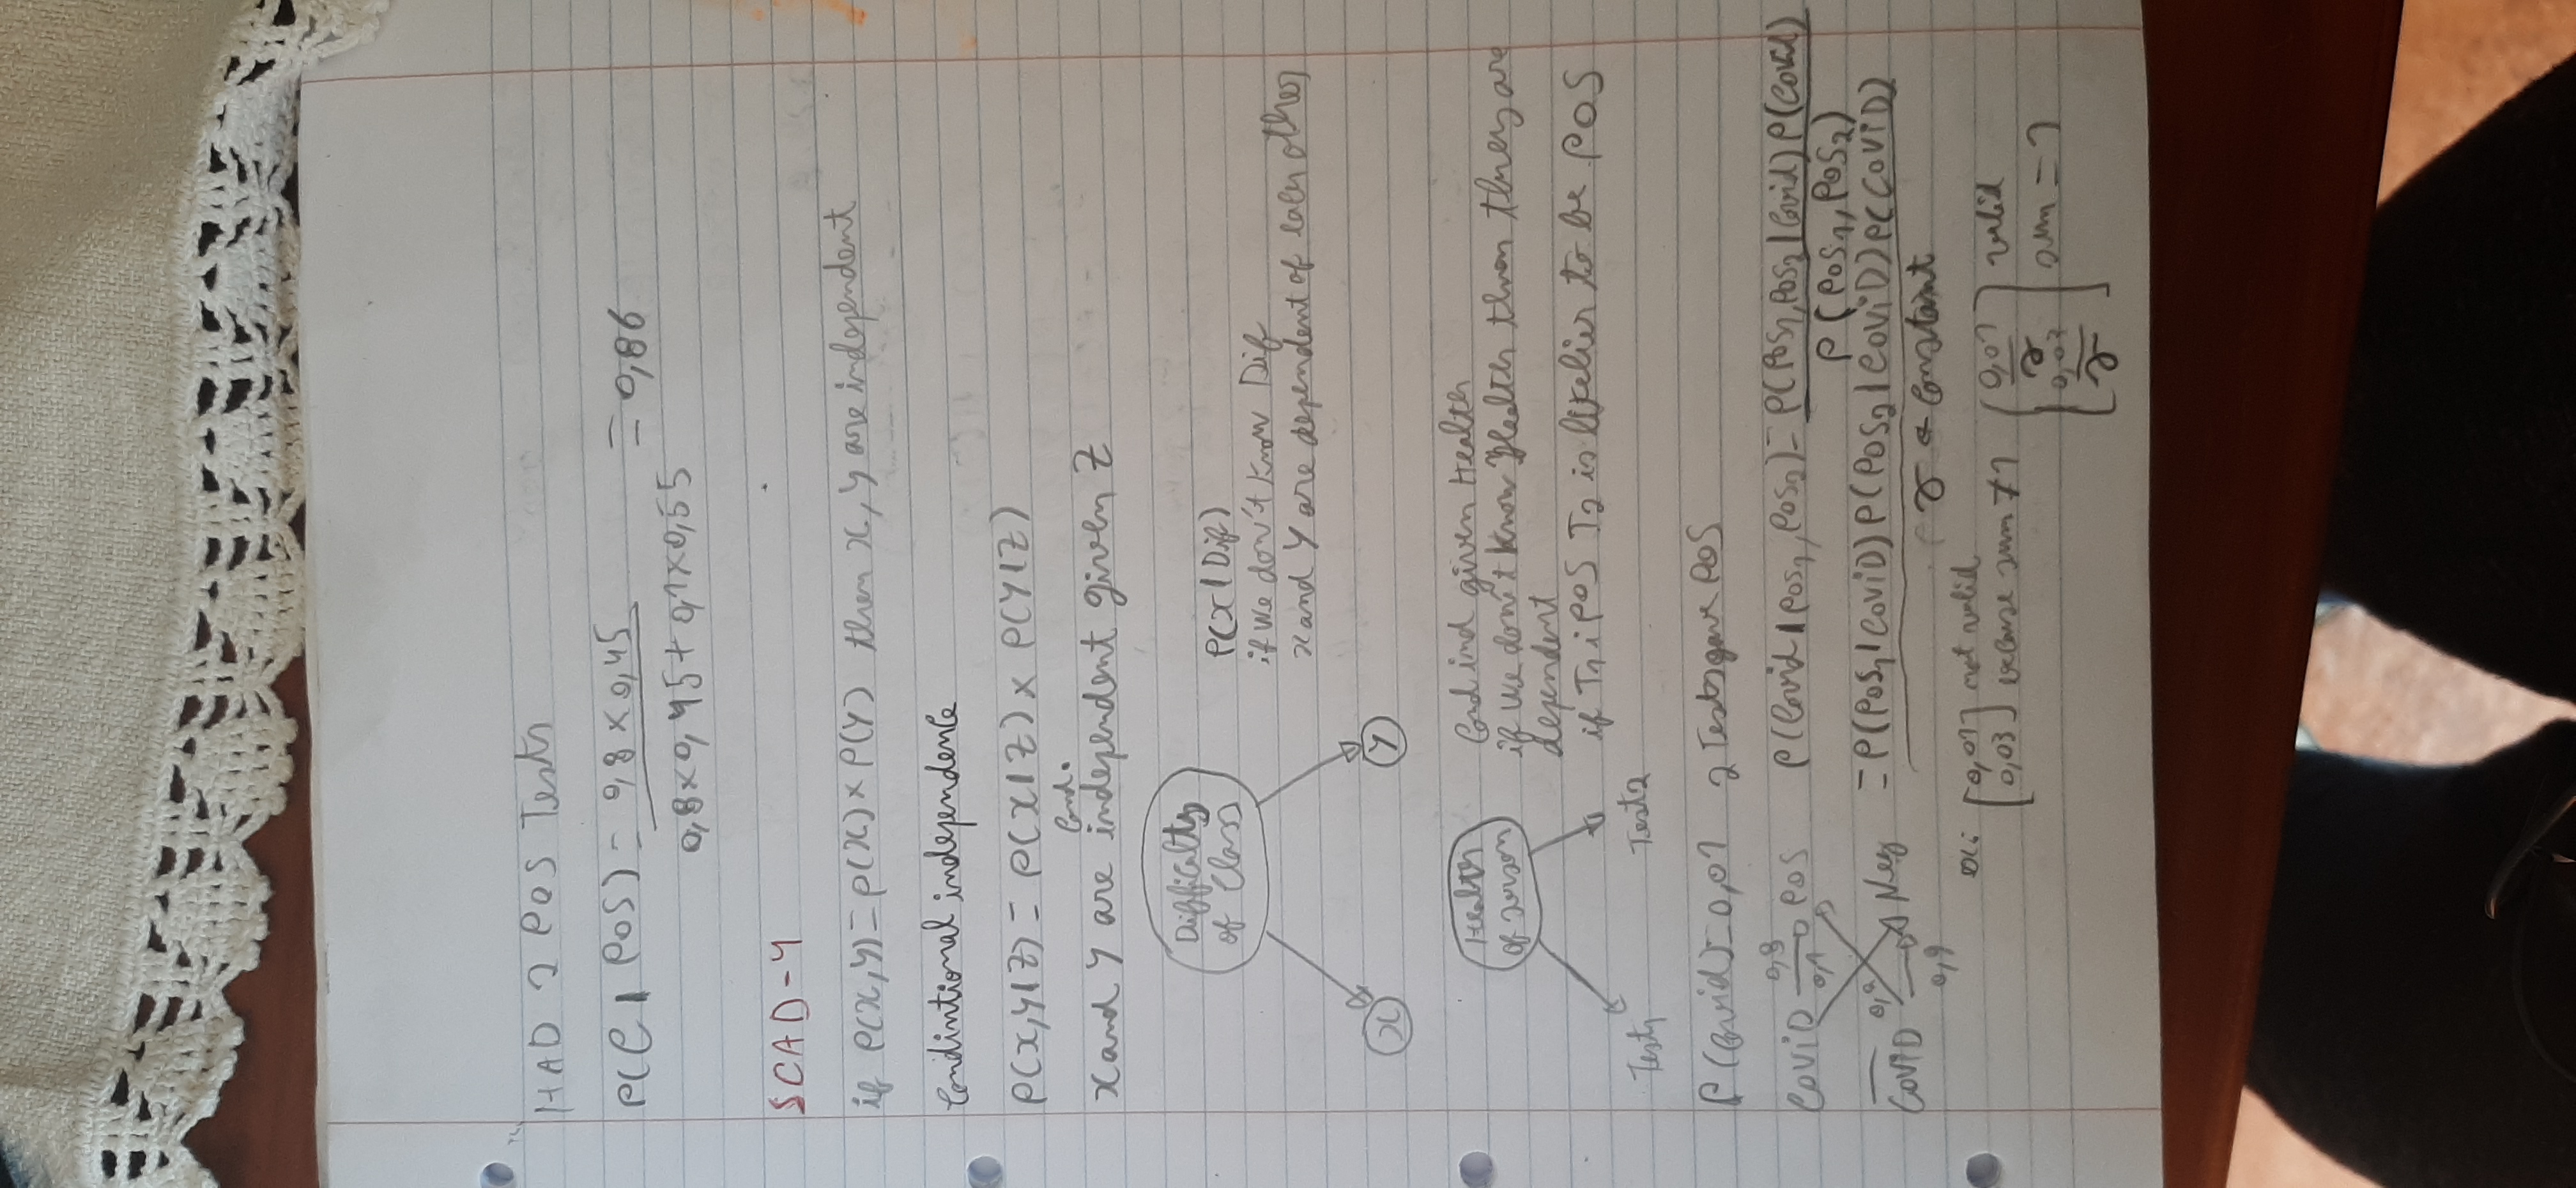 HAD 2 POS Tests
P(C | POS) = 0,8 × 0,45 / 0,8×0,45 + 0,1×0,55 = 0,86
SCAD-4
if P(x,y) = P(x) × P(y) then x, y are independent
Condintional independence
P(x,y|Z) = P(x|Z) × P(Y|Z)
Cond.
x and y are independent given Z
Difficulty
of Class
P(x|Dif)
if we don't know Dif
x and y are dependent of each other
x
y
Health
of person
Cond ind given Health
if we don't know Health then they are
dependent
if T1 i POS T2 is likelier to be POS
Test1
Test2
P(Covid) = 0,01 2 Tests gave POS
COVID 0,8 POS
0,1
P(Covid | POS1, POS2) = P(POS1, POS2 | Covid) P(Covid) / P(POS1, POS2)
COVID Neg
0,9
= P(POS1 | COVID) P(POS2 | COVID) P(COVID) / γ ← Constant
[0,01 0,03] not valid
because sum ≠ 1
[0,01/γ 0,03/γ] valid
sum = 1